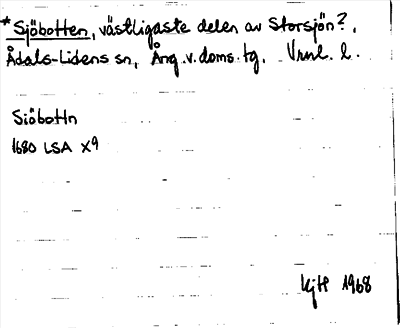 *Sjöbotten, västligaste delen av Storsjön?,
Ådals-Lidens sn, Ång.v.doms.tg. Vrml. l.
Siöbottn
1680 LSA X9
KjH 1968